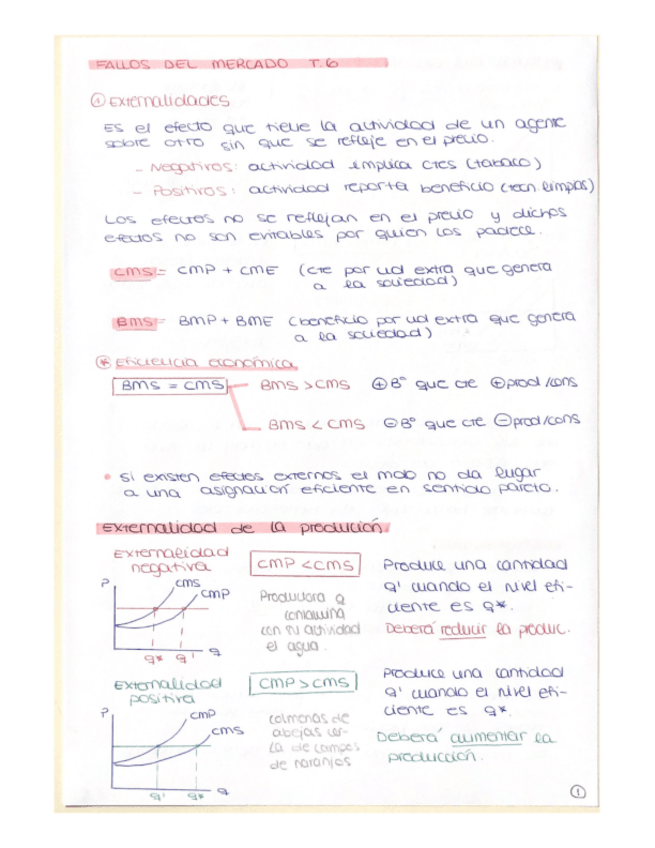 FALLOS DEL MERCADO T.6
① Externalidades
Es el efecto que tiene la actividad de un agente
sobre otro sin que se refleje en el precio.
- Negativos: actividad implica ctes (tabaco)
- Positivos: actividad reporta beneficio (tecn limpias)
Los efectos no se reflejan en el precio y dichos
efectos no son evitables por quien los padece.
CMS = CMP + CME (cte por ud extra que genera
a la sociedad)
BMS = BMP + BME (beneficio por ud extra que genera
a la sociedad)
* Eficiencia económica
BMS = CMS
BMS > CMS ⊕Bº que cte ⊕prod/cons
BMS < CMS ⊖Bº que cte ⊖prod/cons
• Si existen efectos externos el mdo no da lugar
a una asignación eficiente en sentido pareto.
Externalidad de la producción.
Externalidad
negativa
P
CMS
CMP
q* q' q
CMP < CMS
Productora q
contamina
con su actividad
el agua.
Produce una cantidad
q' cuando el nivel efi-
ciente es q*.
Deberá reducir la produc.
Externalidad
positiva
P
CMP
CMS
q' q* q
CMP > CMS
colmenas de
abejas cer-
ca de campos
de naranjos
Produce una cantidad
q' cuando el nivel efi-
ciente es q*.
Deberá aumentar la
producción.
①